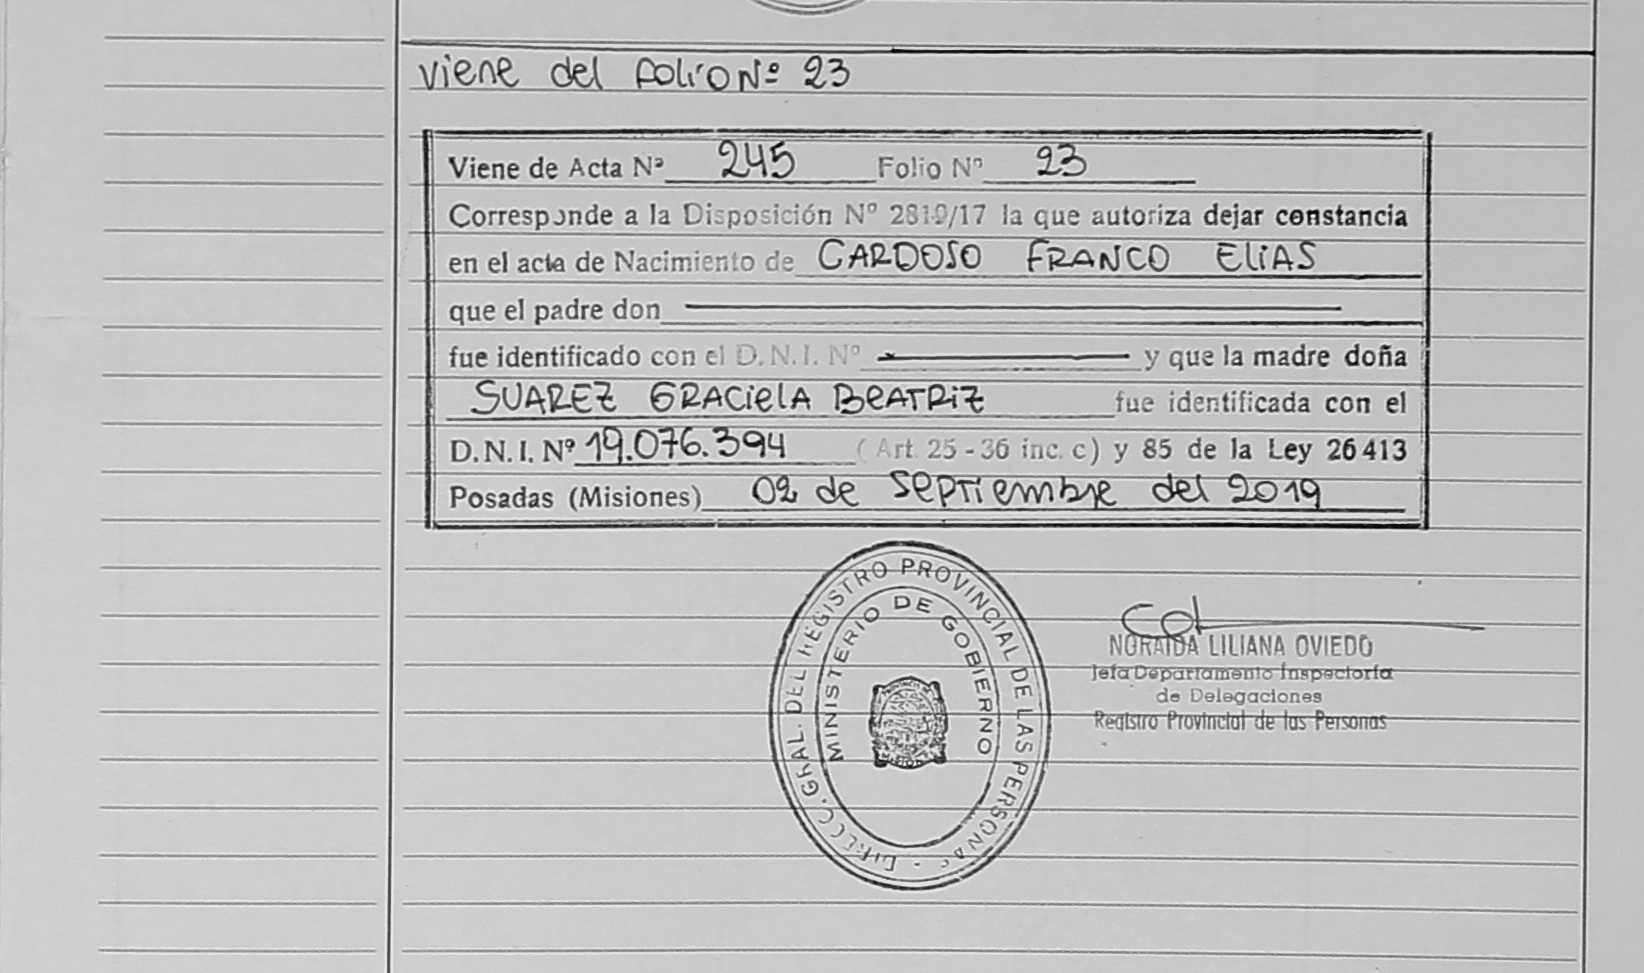 viene del folio Nº 23
Viene de Acta Nº 245 Folio Nº 23
Corresponde a la Disposición Nº 2819/17 la que autoriza dejar constancia
en el acta de Nacimiento de CARDOSO FRANCO ELIAS
que el padre don
fue identificado con el D.N.I. Nº y que la madre doña
SUAREZ GRACIELA BEATRIZ fue identificada con el
D.N.I. Nº 19.076.394 (Art. 25-36 inc. c) y 85 de la Ley 26413
Posadas (Misiones) 02 de septiembre del 2019
DIRECC. GRAL. DEL REGISTRO PROVINCIAL DE LAS PERSONAS -
MINISTERIO DE GOBIERNO
NORAIDA LILIANA OVIEDO
Jefa Departamento Inspectoría
de Delegaciones
Registro Provincial de las Personas